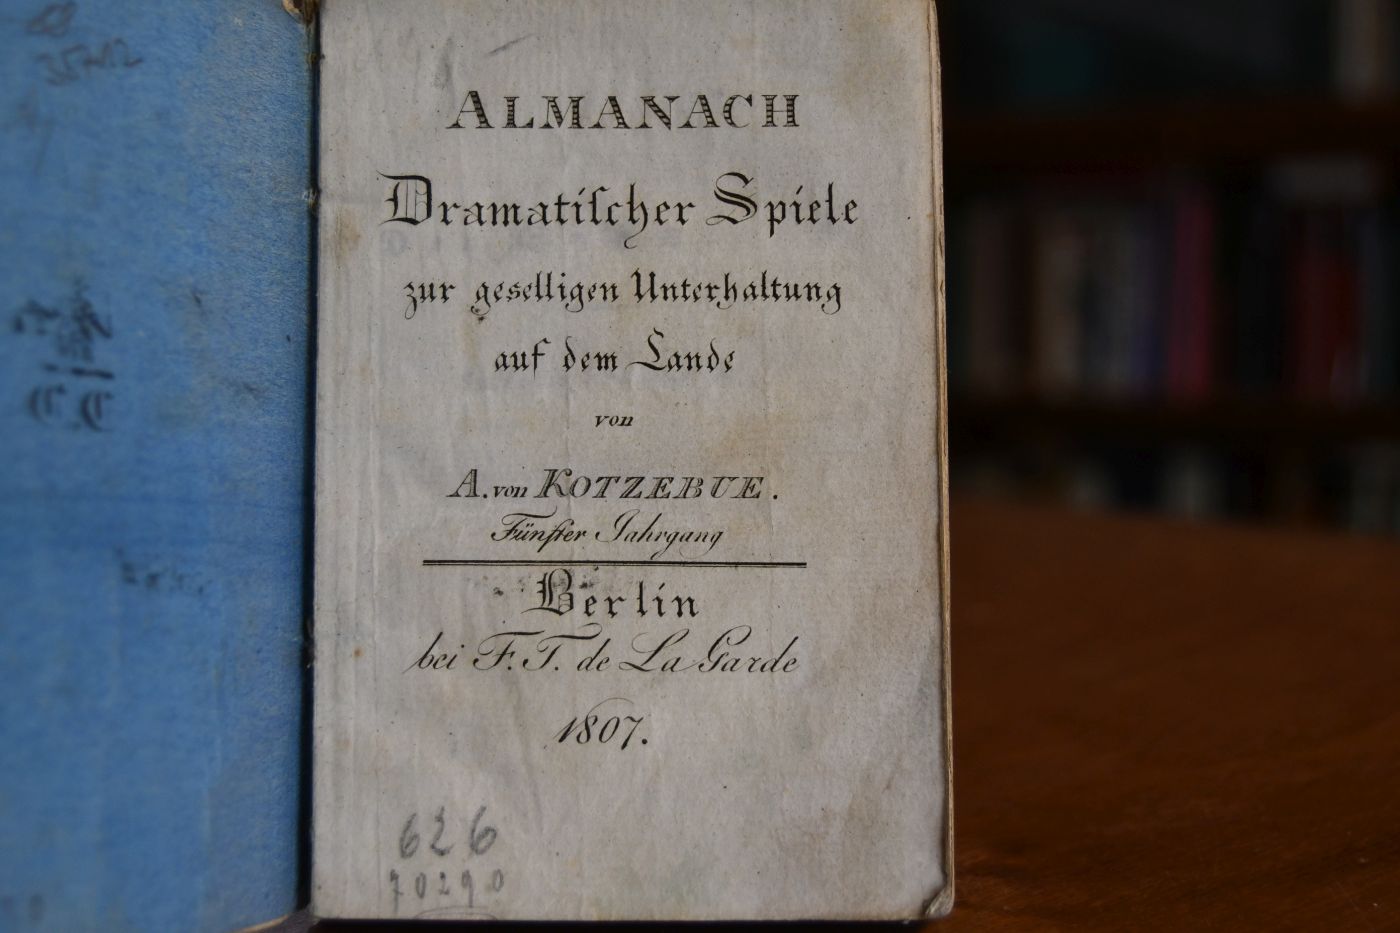 ALMANACH
Dramatiſcher Spiele
zur geselligen Unterhaltung
auf dem Lande
von
A. von KOTZEBUE.
Fünfter Jahrgang
Berlin
bei F. T. de La Garde
1807.
626
70290